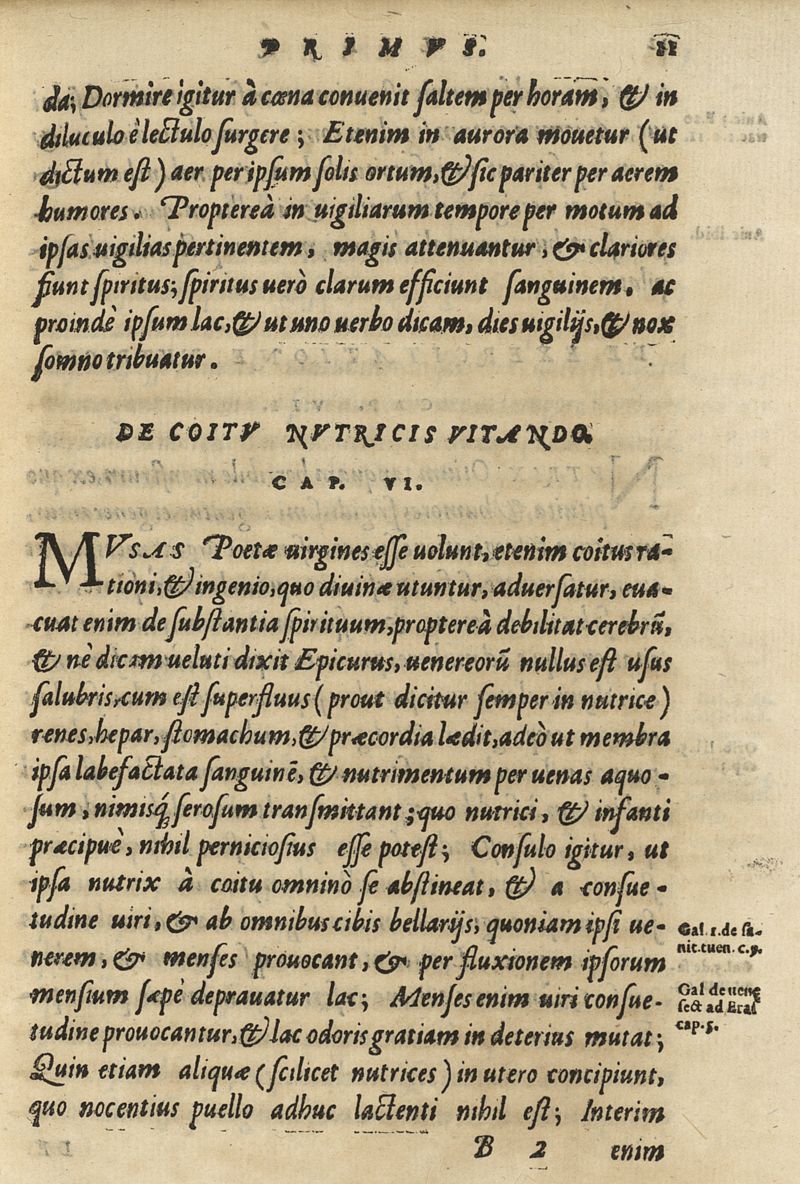 PRIMVS. 11
da; Dormire igitur à cœna conuenit ſaltem per horam, & in
diluculo è lectulo ſurgere; Etenim in aurora mouetur (ut
dictum eſt) aer per ipſum ſolis ortum, & ſic pariter per aerem
humores. Propterea̓ in uigiliarum tempore per motum ad
ipſas uigilias pertinentem, magis attenuantur, & clariores
fiunt ſpiritus; ſpiritus uerò clarum efficiunt ſanguinem, ac
proindè ipſum lac, & ut uno uerbo dicam, dies uigilijs, & nox
ſomno tribuatur.
DE COITV NVTRICIS VITANDO.
CAP. VI.
MVSAS Poetæ uirgines eſſe uolunt, etenim coitus ra-
tioni, & ingenio, quo diuinæ utuntur, aduerſatur, eua-
cuat enim de ſubſtantia ſpirituum, propterea̓ debilitat cerebrū,
& nè dicam ueluti dixit Epicurus, uenereorū nullus eſt uſus
ſalubris, cum eſt ſuperfluus (prout dicitur ſemper in nutrice)
renes, hepar, ſtomachum, & præcordia lædit, adeò ut membra
ipſa labefactata ſanguinē, & nutrimentum per uenas aquo-
ſum, nimisq́; ſeroſum tranſmittant; quo nutrici, & infanti
præcipuè, nihil pernicioſius eſſe poteſt; Conſulo igitur, ut
ipſa nutrix à coitu omninò ſe abſtineat, & a conſue-
tudine uiri, & ab omnibus cibis bellarijs, quoniam ipſi ue-
nerem, & menſes prouocant, & per fluxionem ipſorum
menſium ſæpè deprauatur lac; Menſes enim uiri conſue-
tudine prouocantur, & lac odoris gratiam in deterius mutat;
Quin etiam aliquæ (ſcilicet nutrices) in utero concipiunt,
quo nocentius puello adhuc lactenti nihil eſt; Interim
Gal. 1. de ſa-
nit. tuen. c. 9.
Gal de uene
ſect ad Eraſ
cap. 5.
B 2 enim